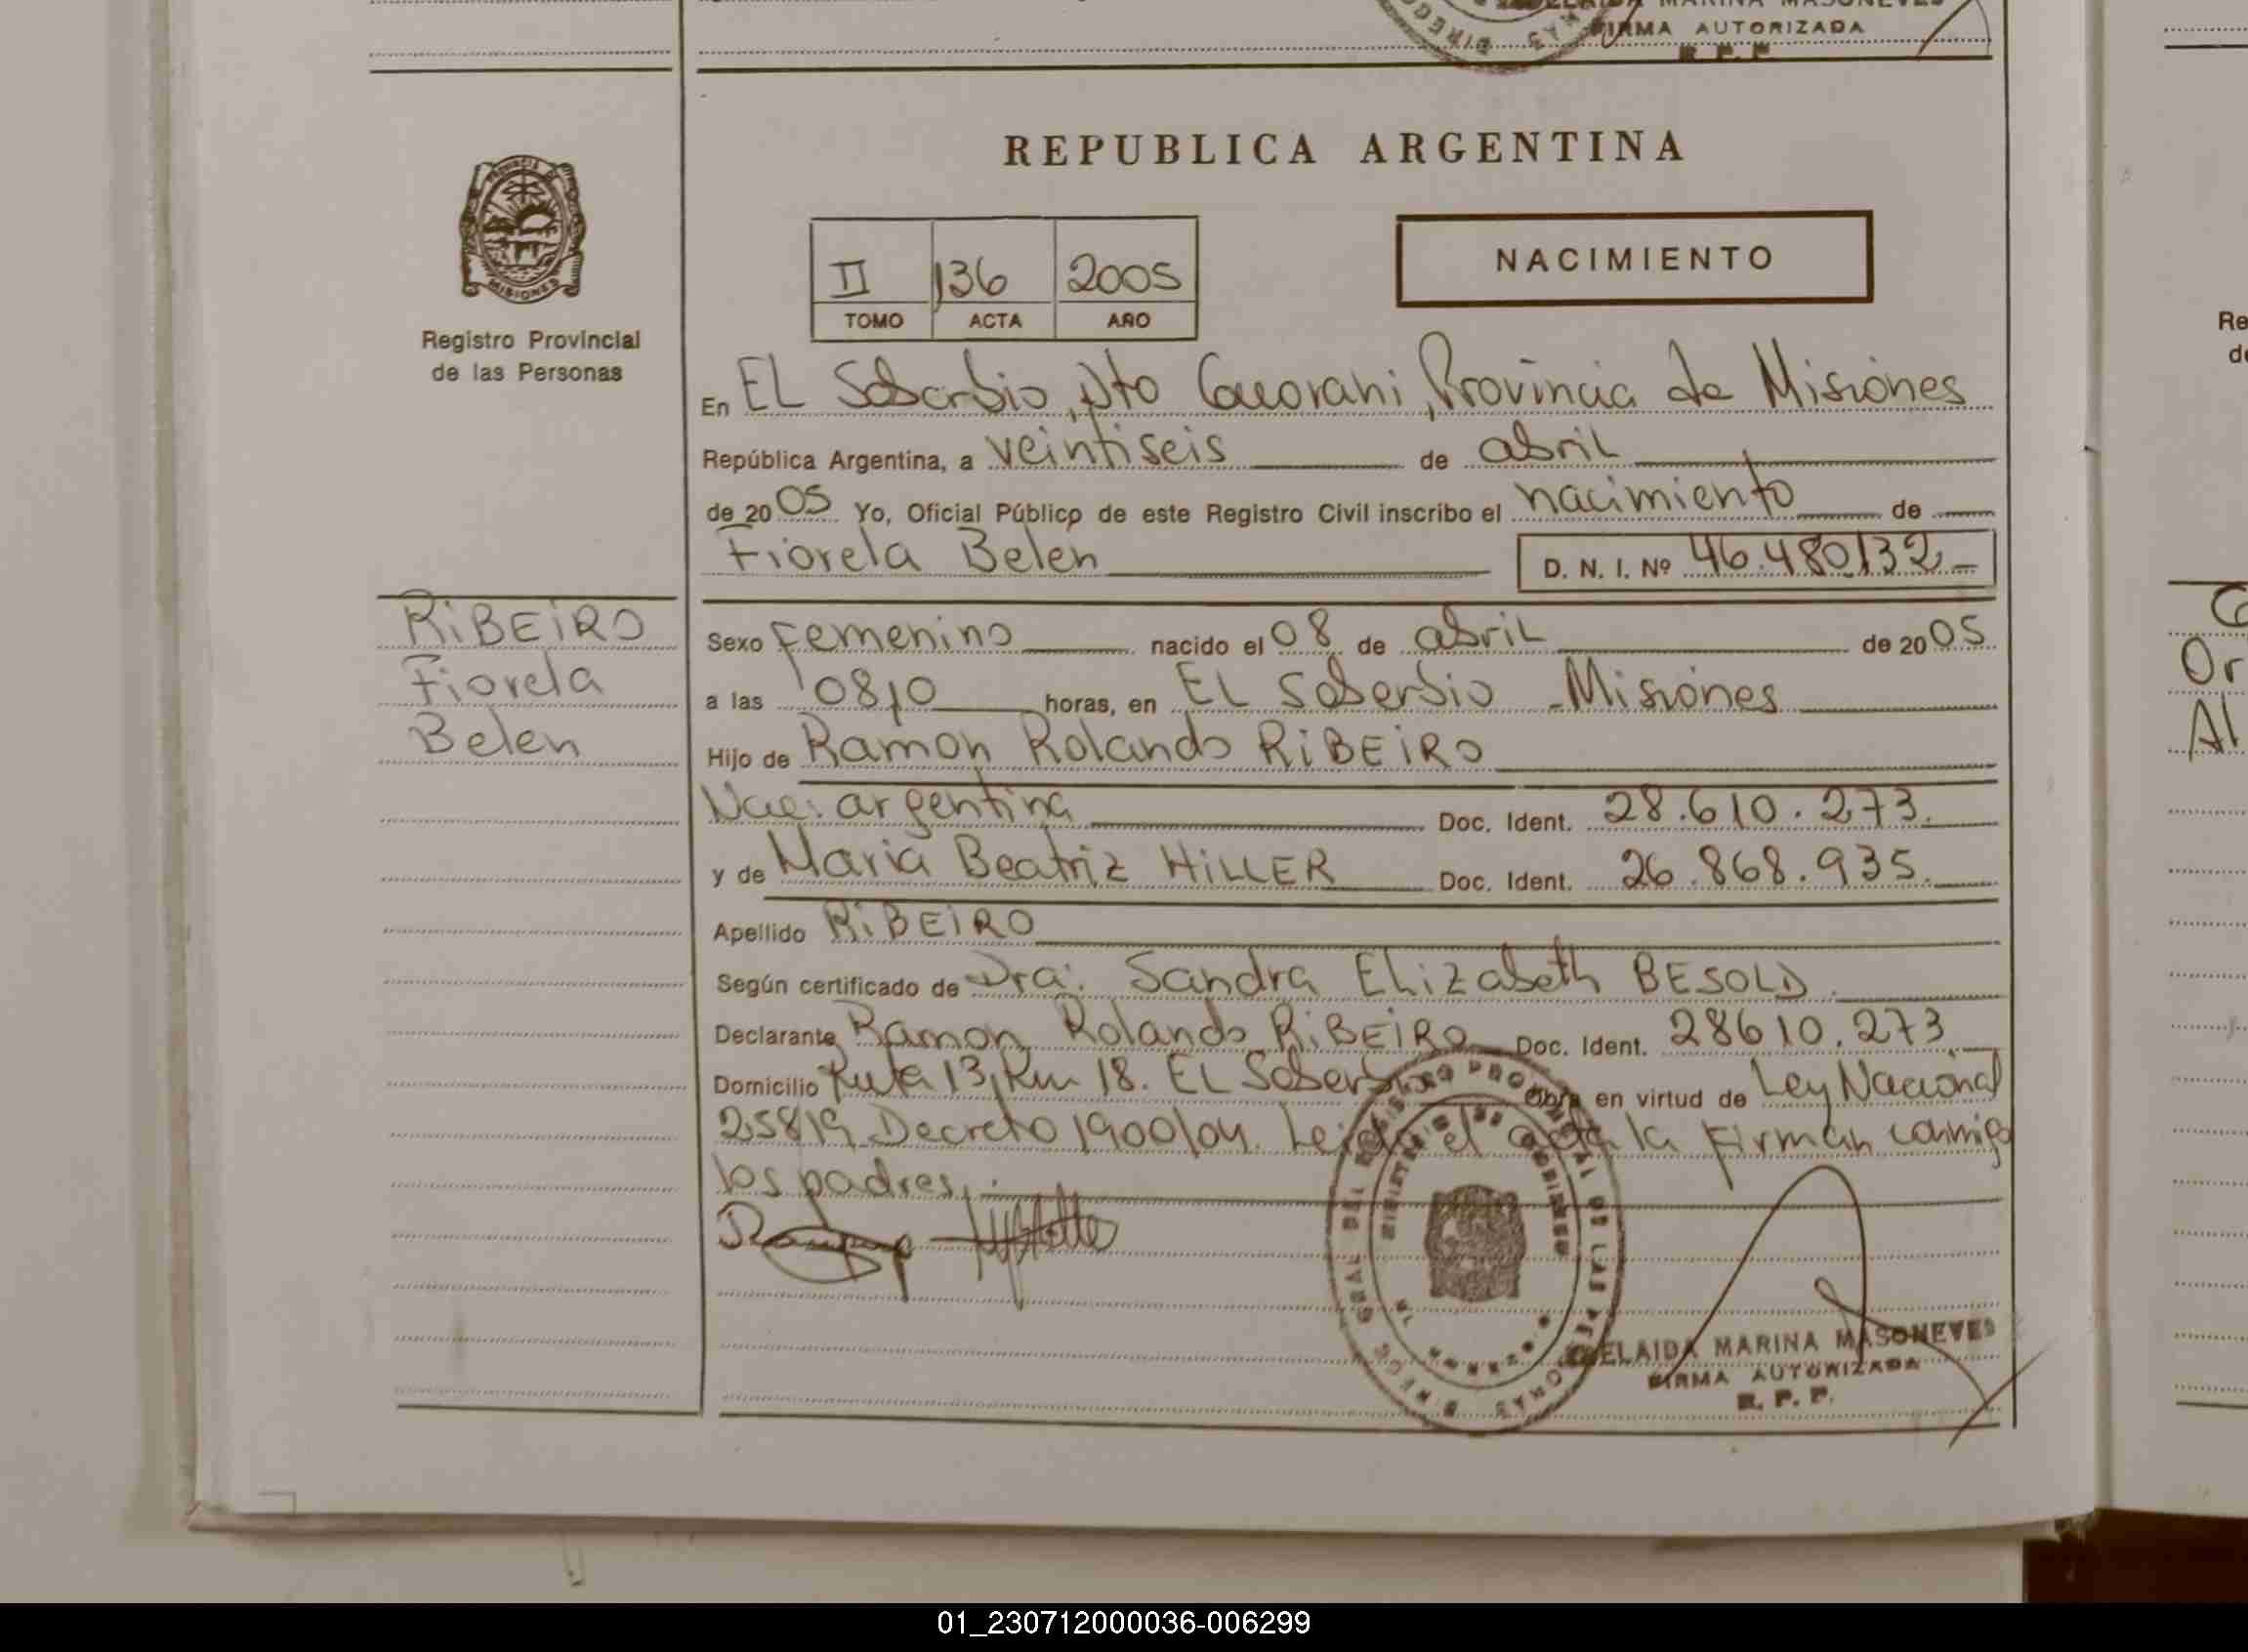 MARINA MASONEVES
FIRMA AUTORIZADA
R. P. P.
REPUBLICA ARGENTINA
PROVINCIA DE
MISIONES
Registro Provincial
de las Personas
II 136 2005
TOMO ACTA AÑO
NACIMIENTO
En EL Soberbio, Dto Guarani, Provincia de Misiones
República Argentina, a veintiseis de abril
de 2005 Yo, Oficial Público de este Registro Civil inscribo el nacimiento de
Fiorela Belen D. N. I. Nº 46.480.132
RIBEIRO
Fiorela
Belen
Sexo Femenino nacido el 08 de abril de 2005
a las 08,10 horas, en EL Soberbio - Misiones
Hijo de Ramon Rolando RIBEIRO
Nac: argentina Doc. Ident. 28.610.273.
y de Maria Beatriz HILLER Doc. Ident. 26.868.935.
Apellido RIBEIRO
Según certificado de Dra. Sandra Elizabeth BESOLD.
Declarante Ramon Rolando RIBEIRO Doc. Ident. 28610.273
Domicilio Ruta 13, Km 18. EL Soberbio Obra en virtud de Ley Nacional
25819 Decreto 1900/04. Leida el acta la firman conmigo
los padres.
ELAIDA MARINA MASONEVES
FIRMA AUTORIZADA
R. P. P.
Re
Or
Al
01_230712000036-006299